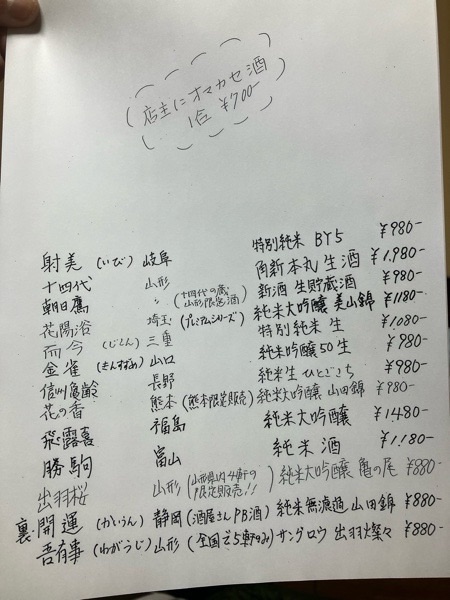 店主にオマカセ酒
1合 ¥700-
射美 (いび) 岐阜 特別純米 BY5 ¥980-
十四代 山形 角新本丸 生酒 ¥1,980-
朝日鷹 〃 (十四代の蔵 山形限定酒) 新酒 生貯蔵酒 ¥980-
花陽浴 埼玉 (プレミアムシリーズ) 純米大吟醸 美山錦 ¥1180-
而今 (じこん) 三重 特別純米 生 ¥1080-
金雀 (きんすずめ) 山口 純米吟醸50生 ¥980-
信州亀齢 長野 純米生ひとごこち ¥980-
花の香 熊本 (熊本限定販売) 純米大吟醸 山田錦 ¥980-
飛露喜 福島 純米大吟醸 ¥1480-
勝駒 富山 純米酒 ¥1,180-
出羽桜 山形 (山形県内4軒の限定販売!!) 純米大吟醸 亀の尾 ¥880-
裏・開運 (かいうん) 静岡 (酒屋さんPB酒) 純米無濾過 山田錦 ¥880-
吾有事 (わがうじ) 山形 (全国で5軒のみ) サングロウ 出羽燦々 ¥880-